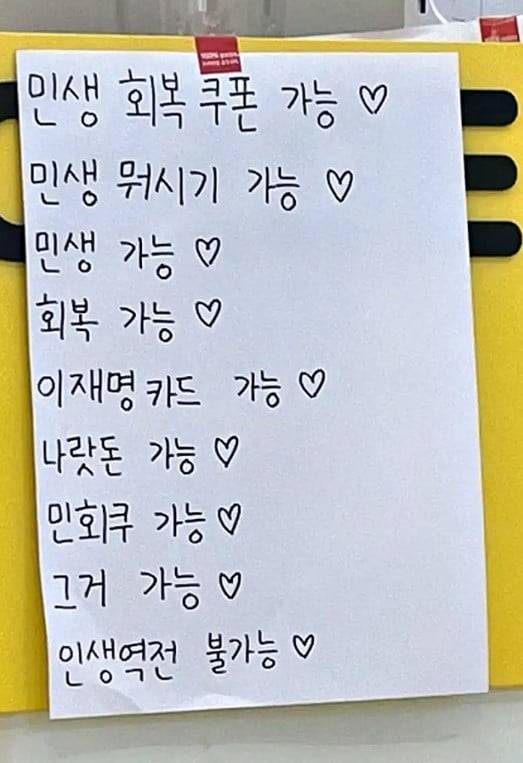 민생 회복 쿠폰 가능 ♡
민생 뭐시기 가능 ♡
민생 가능 ♡
회복 가능 ♡
이재명 카드 가능 ♡
나랏돈 가능 ♡
민회쿠 가능 ♡
그거 가능 ♡
인생역전 불가능 ♡